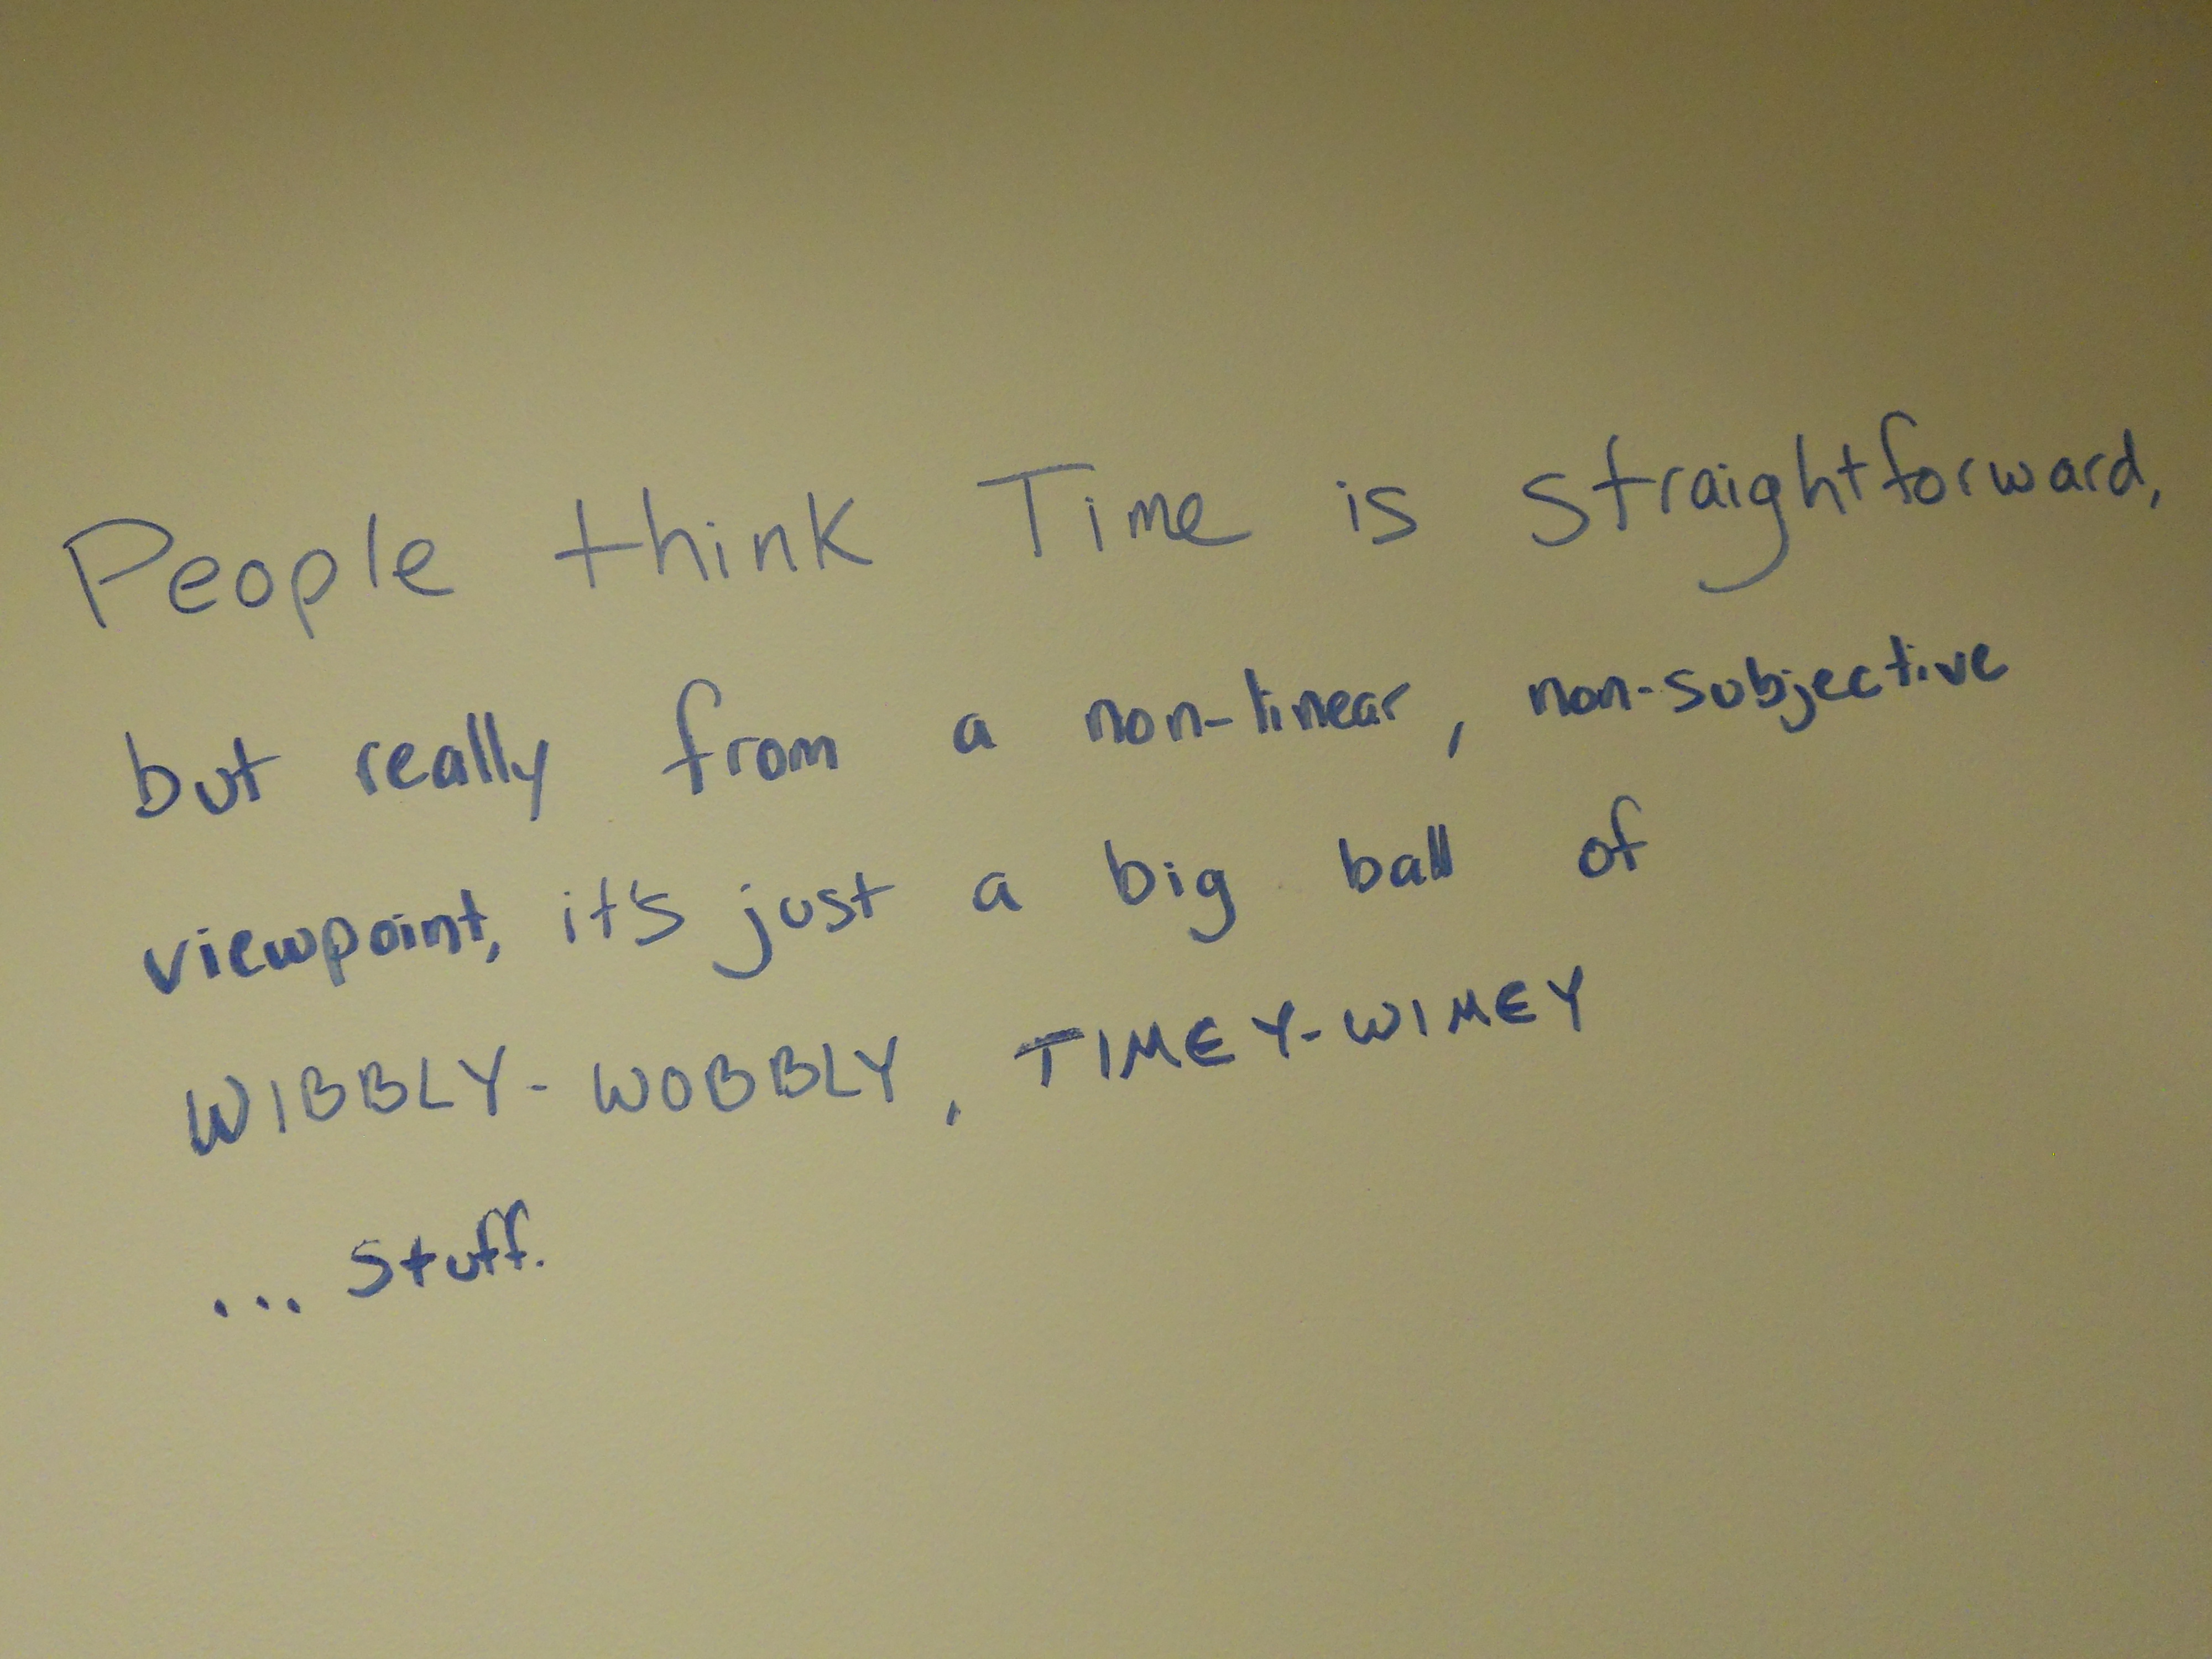 People think Time is straightforward,
but really from a non-linear, non-subjective
viewpoint, it's just a big ball of
WIBBLY-WOBBLY, TIMEY-WIMEY
... stuff.